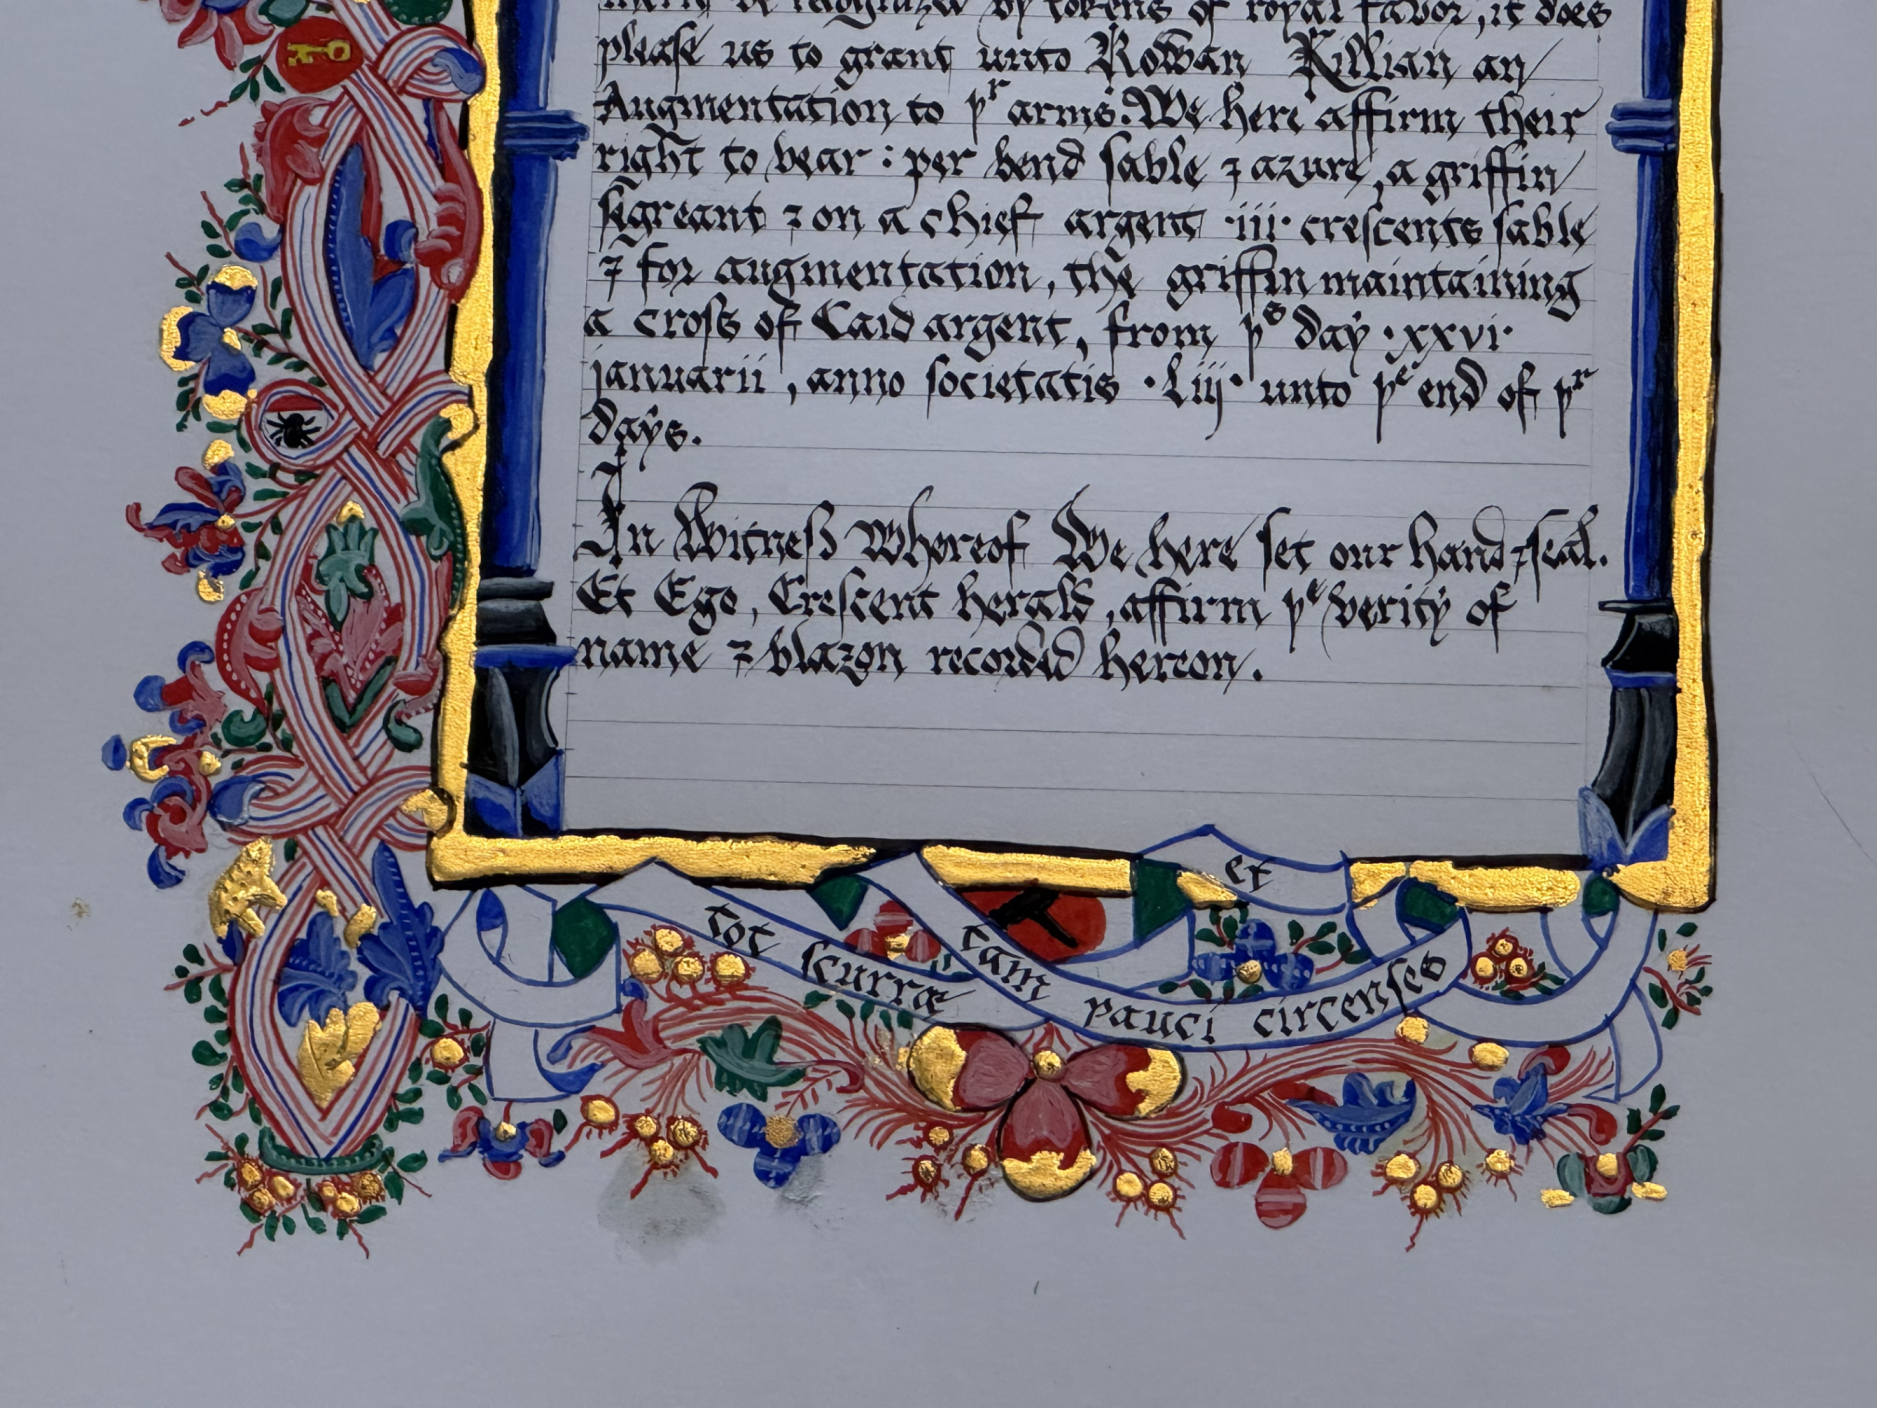 merit be recognized by tokens of royal favor, it does
please us to grant unto Rowan Killian an
Augmentation to yʳ arms. We here affirm their
right to bear : per bend sable ⁊ azure, a griffin
segreant ⁊ on a chief argent ·iii· crescents sable
⁊ for augmentation, the griffin maintaining
a cross of Caid argent, from yˢ day ·xxvi·
januarii, anno societatis ·Liij· unto yᵉ end of yʳ
days.
In Witneſs Whereof We here set our hand ⁊ seal.
Et Ego, Crescent herald, affirm yᵉ verity of
name ⁊ blazon recorded hereon.
et
tot scurræ
tam pauci circenses